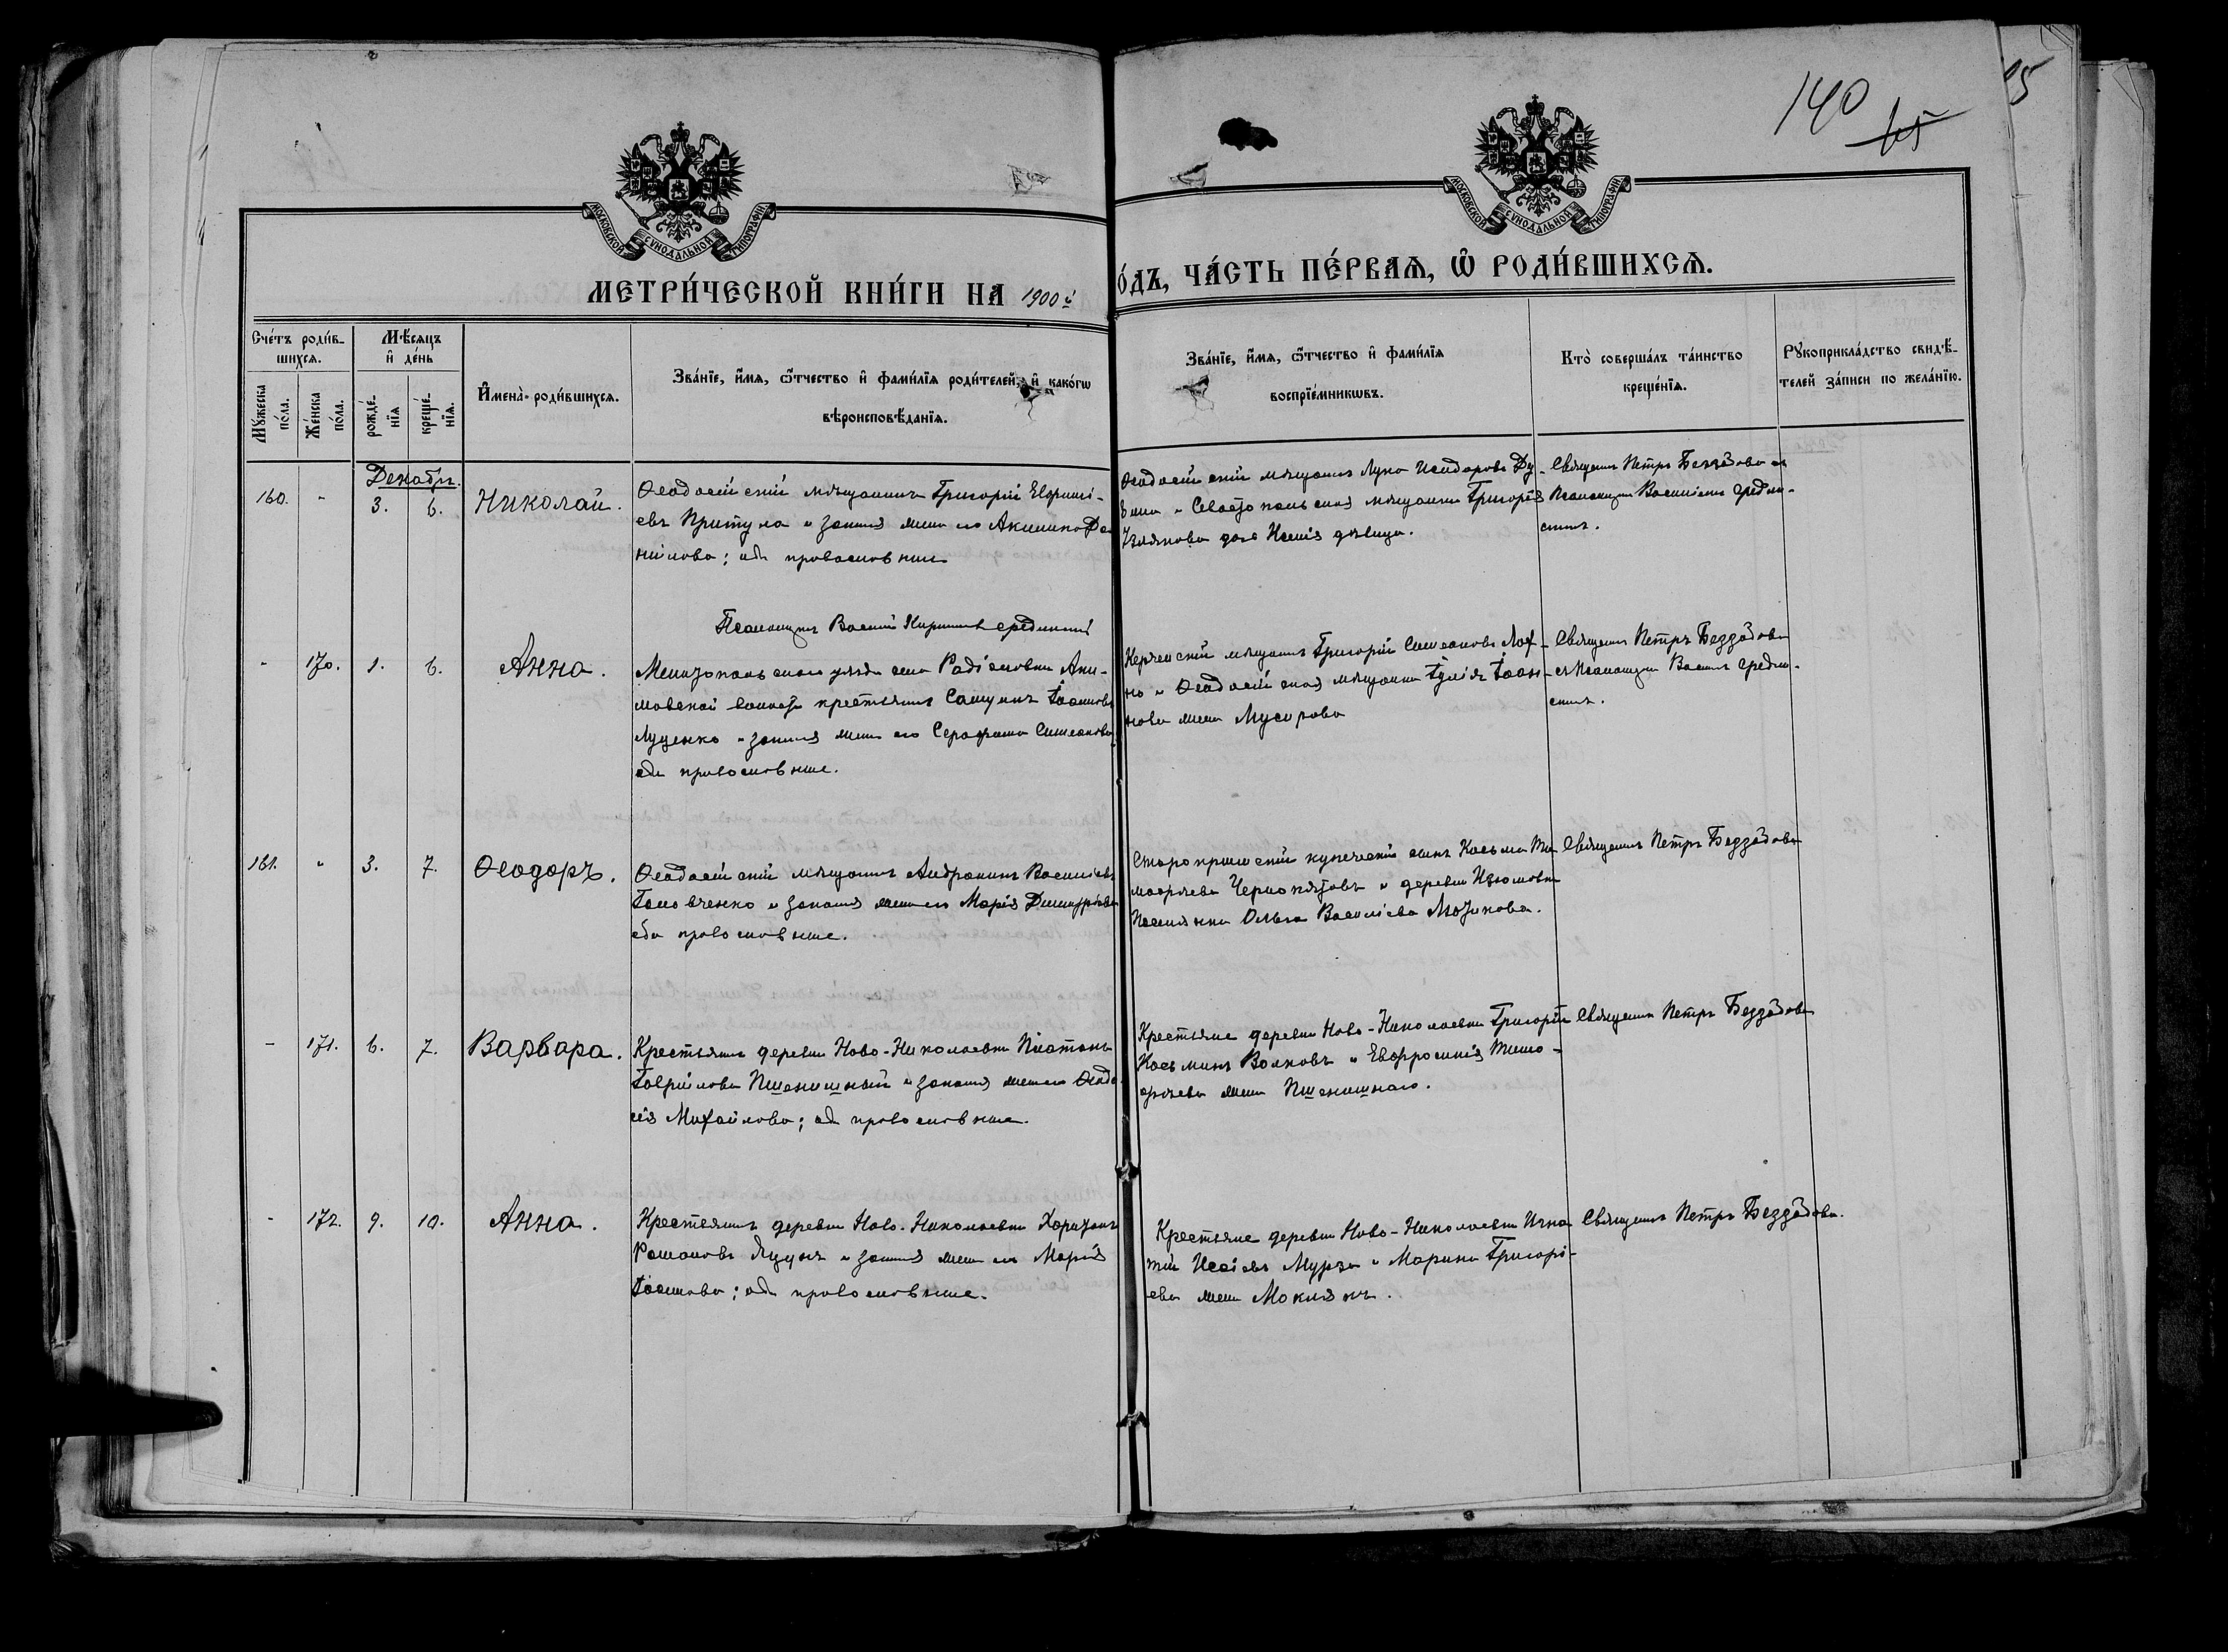 140
65
95
МОСКОВСКОЙ СѴНОДАЛЬНОЙ ТИПОГРАФІИ
МОСКОВСКОЙ СѴНОДАЛЬНОЙ ТИПОГРАФІИ
МЕТРИ́ЧЕСКОЙ КНИ́ГИ НА 1900й
О́ДЪ, ЧА́СТЬ ПЕ́РВАѦ, Ѽ РОДИ́ВШИХСѦ.
Сче́тъ роди́в-
шихсѧ.
Мѣ́сѧцъ
и҆ де́нь
Мꙋ́жеска
по́ла.
Же́нска
по́ла.
рожде́-
нїѧ
креще́-
нїѧ.
И҆мена̀ роди́вшихсѧ.
Зва́нїе, и҆́мѧ, ѻ҆́тчество и҆ фами́лїѧ роди́телей, и҆ како́гѡ
вѣроисповѣ́данїѧ.
Зва́нїе, и҆́мѧ, ѻ҆́тчество и҆ фами́лїѧ
воспрїе́мникѡвъ.
Кто̀ соверша́лъ та́инство
креще́нїѧ.
Рꙋкоприкла́дство свидѣ́-
телей за́писи по жела́нїю.
Декабрь.
160. - 3. 6. Николай.
Ѳеодосійскій мѣщанинъ Григорій Евфимі-
евъ Притула и законная жена его Акилина Да
нiилова; оба православные
Ѳеодосійскій мѣщанинъ Лука Исидоровъ
и Севастопольская мѣщанка Григорія
дочь дѣвица.
Священникъ Петръ Беззабава съ
Псаломщикомъ Василіемъ Средин-
скимъ.
Псаломщикъ Василій Срединскій
- 170. 1. 6. Анна.
Мелитопольскаго уѣзда села Радіоновки Аки-
мовской волости крестьянинъ Самуилъ Іоанновъ
Луценко и законная жена его Серафима Симеонова
оба православные.
Керченскій мѣщанинъ Григорій Симеоновъ Лох-
но и Ѳеодосійская мѣщанка Іулія Іоан-
нова жена Мусирова
Священникъ Петръ Беззабава
съ Псаломщикомъ Василіемъ Средин-
скимъ.
161. - 3. 7. Ѳеодоръ.
Ѳеодосійскій мѣщанинъ Андроникъ Василіевъ
Головченко и законная жена его Марія Димитріева
оба православные.
Старокрымскій купеческій сынъ Косьма Ти
моѳеевъ Чернопятовъ и деревни Изюмовки
Поселянка Ольга Василіева
Священникъ Петръ Беззабава
- 171. 6. 7. Варвара.
Крестьянинъ деревни Ново-Николаевки Платонъ
Гавріиловъ Пшенишный и законная жена его Ѳеодо
сія Михайлова; оба православные.
Крестьяне деревни Ново-Николаевки Григорій
Косьминъ Волковъ и Евфросинія Тимо-
ѳеева жена Пшенишнаго.
Священникъ Петръ Беззабава
- 172. 9. 10. Анна.
Крестьянинъ деревни Ново-Николаевки Харитонъ
Романовъ Яцунъ и законная жена его Марія
Іоаннова; оба православные.
Крестьяне деревни Ново-Николаевки Игна
тій Исаіевъ Мурза и Марина Григорі-
ева жена Моклякъ.
Священникъ Петръ Беззабава.